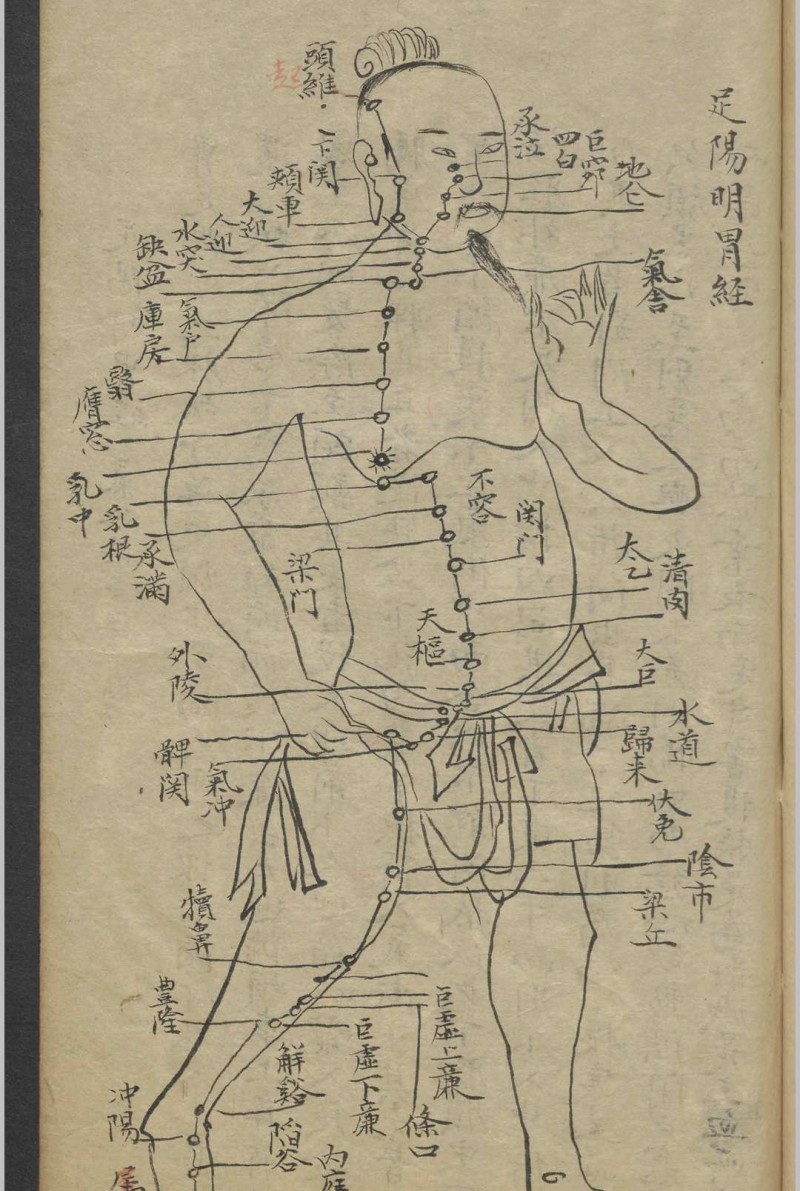 足陽明胃経
起
頭維
下関
頬車
承泣
四白
巨窌
地仓
大迎
人迎
水突
缺盆
氣舍
氣户
庫房
翳
膺窓
乳中
乳根
不容
承滿
梁门
関门
太乙
清肉
天樞
外陵
大巨
水道
歸来
氣冲
髀関
伏兔
陰市
梁丘
犢鼻
巨虚上廉
條口
巨虚下廉
豊隆
解谿
冲陽
陷谷
内庭